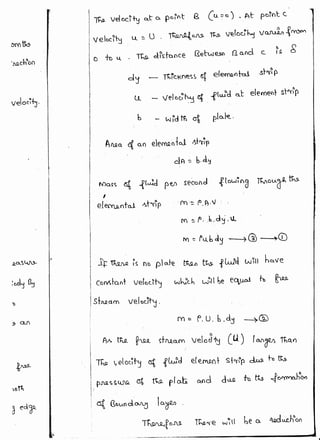 The velocity at a point B (u=0). At point c
velocity u = U. Therefore the velocity varies from
0 to u. The distance Between B and c is δ
dy — Thickness of elemental strip
u — velocity of fluid at element strip
b — width of plate.
Area of an elemental strip
dA = b.dy
mass of fluid per second flowing Through the
elemental strip m = ρ.A.V
m = ρ.b.dy.u
m = ρub dy → ② → ①
If There is no plate then the fluid will have
constant velocity which will be equal to free
stream velocity.
m = ρ.U.b.dy → ②
As the free stream velocity (U) larger Than
The velocity of fluid element strip due to the
pressure of the plate and due to the formation
of Boundary layer.
Therefore There will be a reduction
velocity.
free
edge